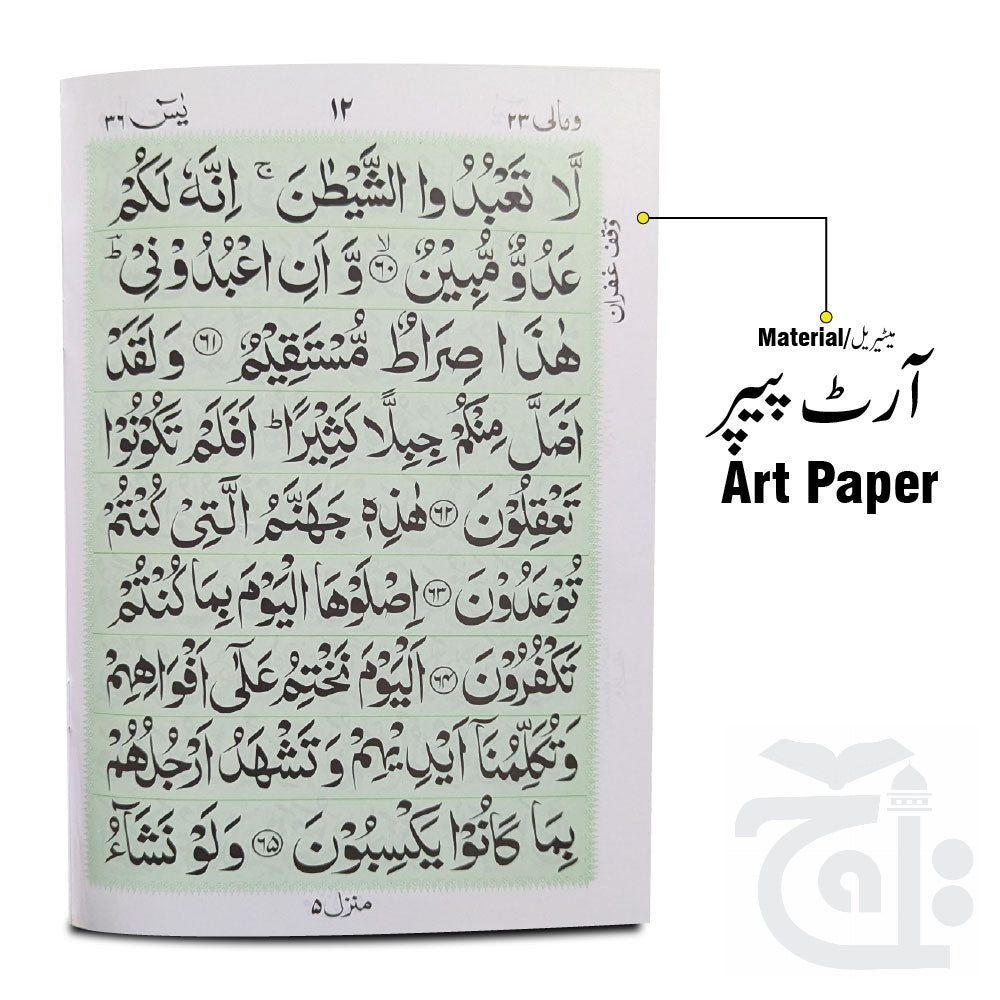 ومالی ۲۳
۱۲
یٰسٓ ۳۶
لَّا تَعْبُدُوا الشَّيْطٰنَ ۚ اِنَّهٗ لَكُمْ
عَدُوٌّ مُّبِيْنٌ ۙ﴿۶۰﴾ وَّ اَنِ اعْبُدُوْنِیْ ؕ
هٰذَا صِرَاطٌ مُّسْتَقِيْمٌ ﴿۶۱﴾ وَلَقَدْ
اَضَلَّ مِنْكُمْ جِبِلًّا كَثِيْرًا ؕ اَفَلَمْ تَكُوْنُوْا
تَعْقِلُوْنَ ﴿۶۲﴾ هٰذِهٖ جَهَنَّمُ الَّتِیْ كُنْتُمْ
تُوْعَدُوْنَ ﴿۶۳﴾ اِصْلَوْهَا الْيَوْمَ بِمَا كُنْتُمْ
تَكْفُرُوْنَ ﴿۶۴﴾ اَلْيَوْمَ نَخْتِمُ عَلٰٓی اَفْوَاهِهِمْ
وَتُكَلِّمُنَاۤ اَيْدِيْهِمْ وَتَشْهَدُ اَرْجُلُهُمْ
بِمَا كَانُوْا يَكْسِبُوْنَ ﴿۶۵﴾ وَلَوْ نَشَآءُ
منزل ۵
وقف غفران
Material/میٹیریل
آرٹ پیپر
Art Paper